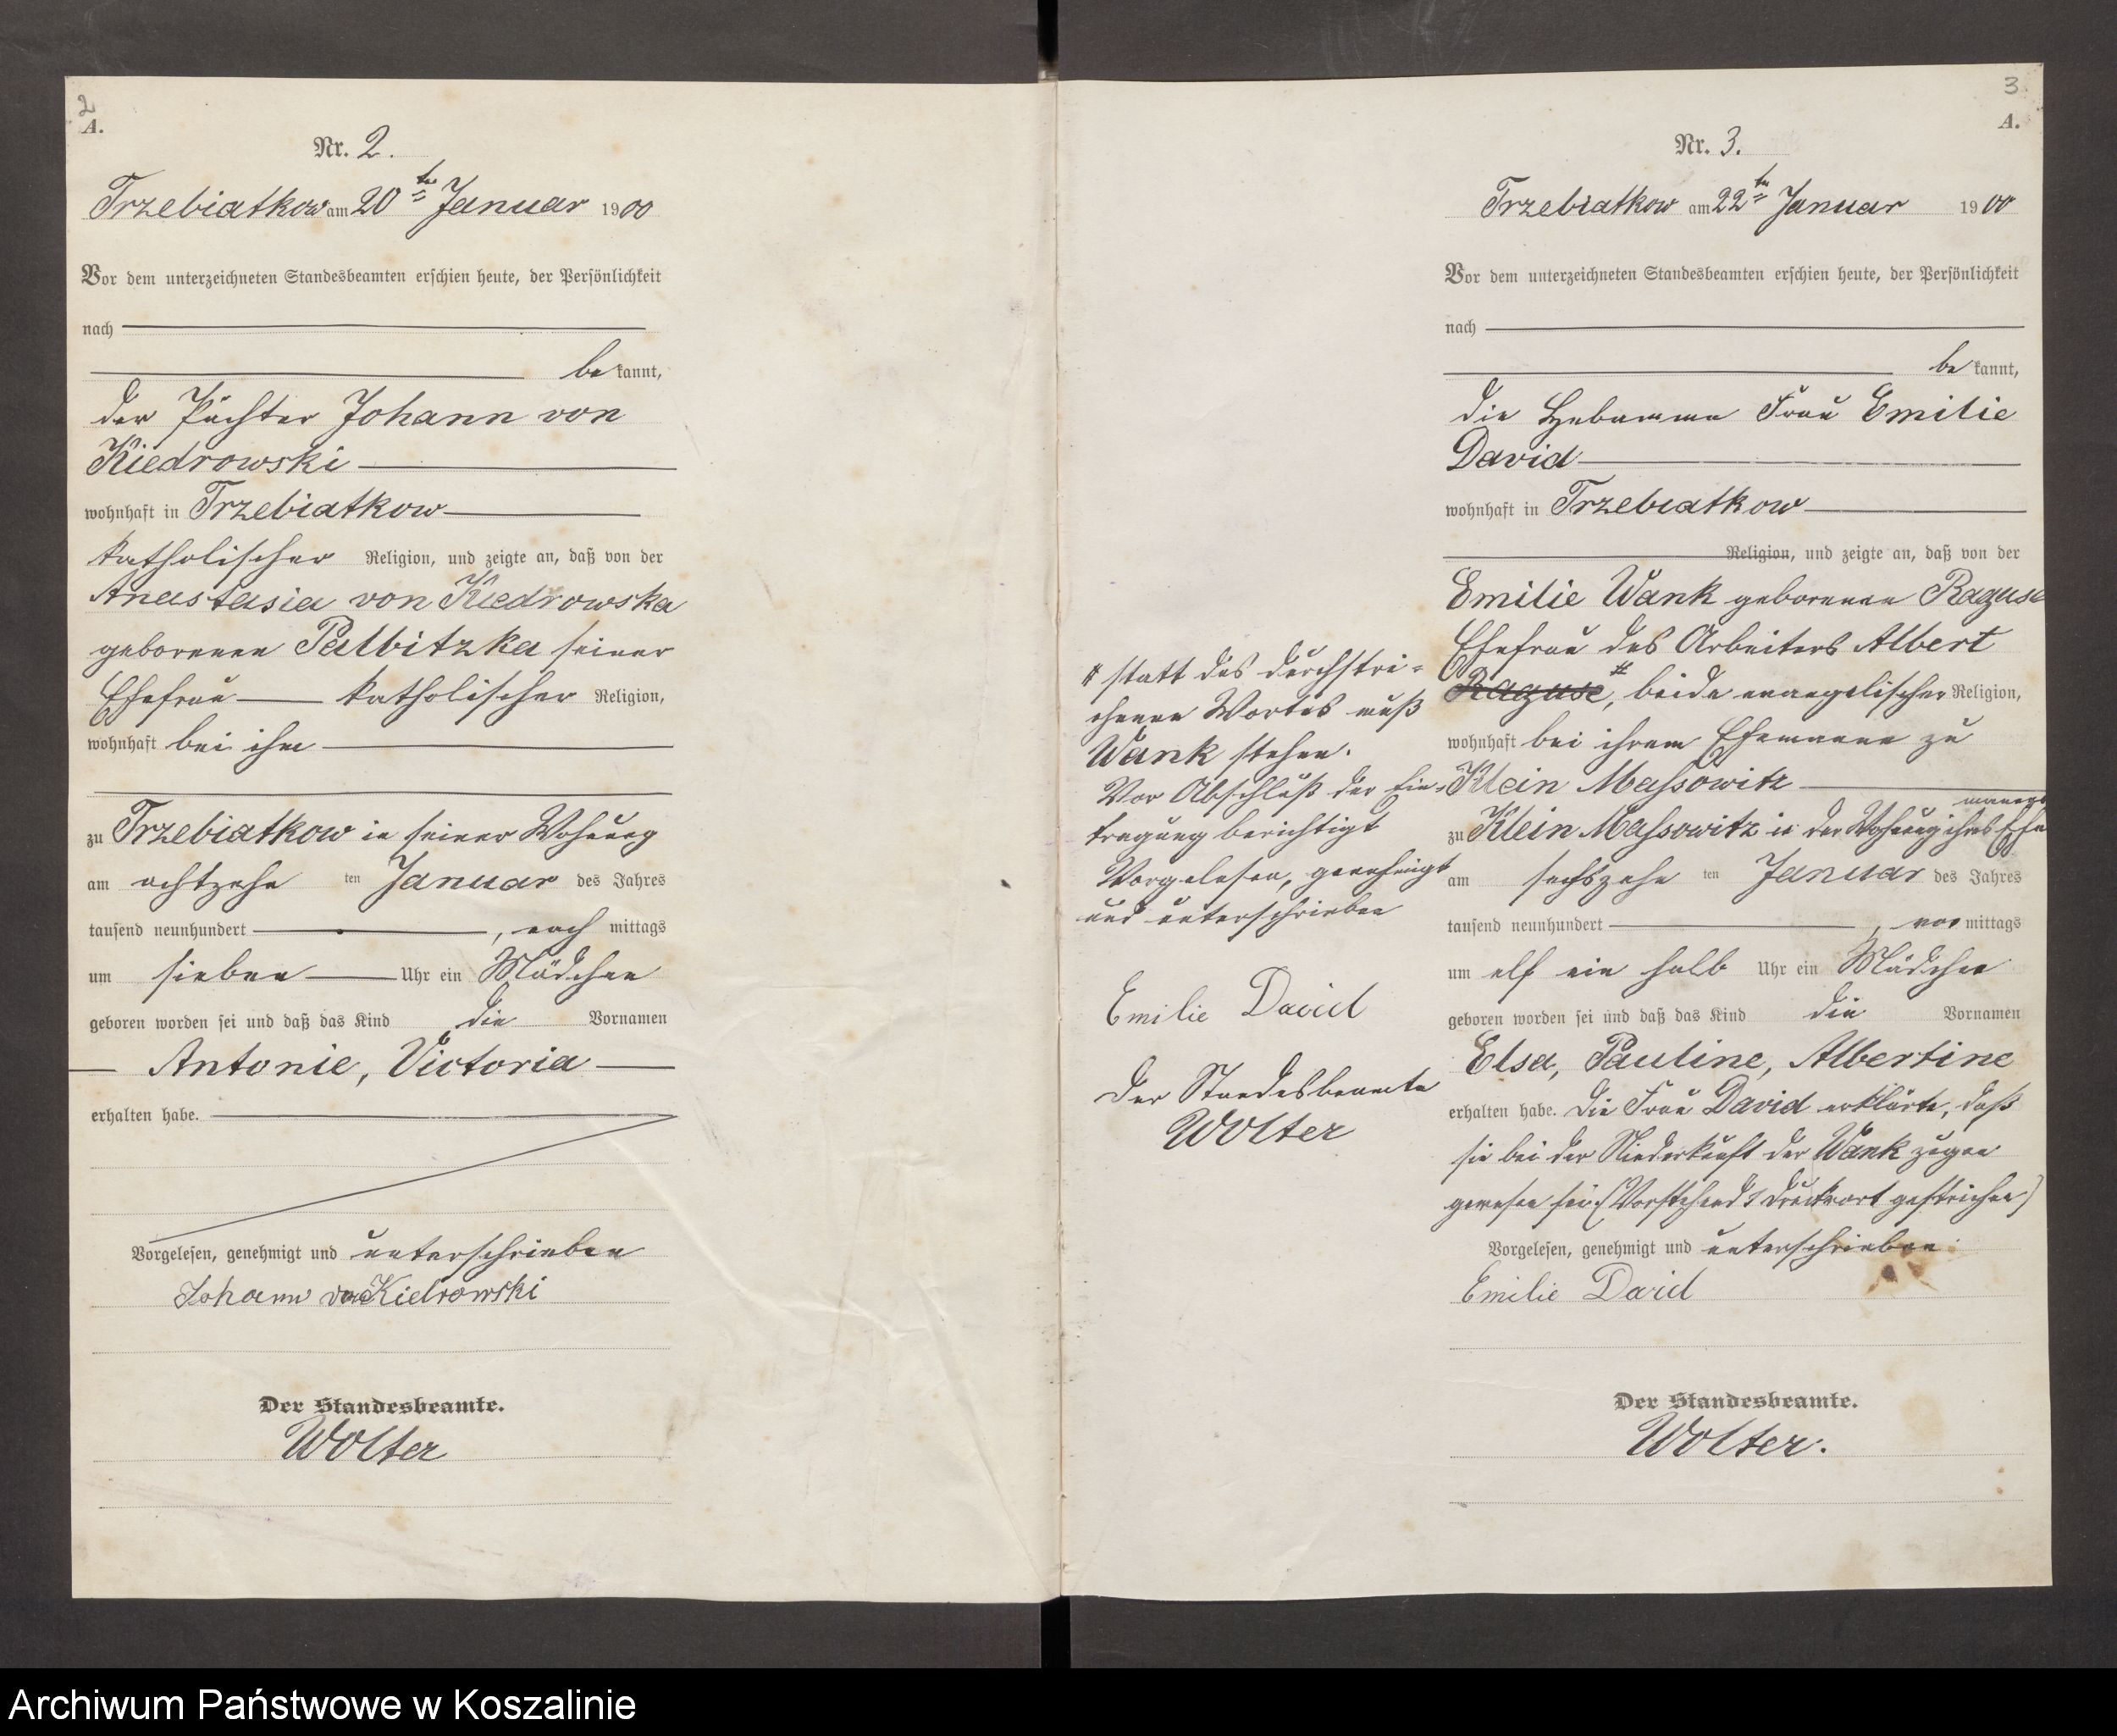 2
A.
Nr. 2.
Trzebiatkow am 20ten Januar 1900
Vor dem unterzeichneten Standesbeamten erschien heute, der Persönlichkeit
nach
be kannt,
der Pächter Johann von
Kiedrowski
wohnhaft in Trzebiatkow
katholischer Religion, und zeigte an, daß von der
Anastasia von Kiedrowska
geborenen Palbitzka seiner
Ehefrau katholischer Religion,
wohnhaft bei ihm
zu Trzebiatkow in seiner Wohnung
am achtzehn ten Januar des Jahres
tausend neunhundert , nach mittags
um sieben Uhr ein Mädchen
geboren worden sei und daß das Kind die Vornamen
Antonie, Victoria
erhalten habe.
Vorgelesen, genehmigt und unterschrieben
Johann von Kiedrowski
Der Standesbeamte.
Wolter
3
A.
Nr. 3.
Trzebiatkow am 22ten Januar 1900
Vor dem unterzeichneten Standesbeamten erschien heute, der Persönlichkeit
nach
be kannt,
die Hebamme Frau Emilie
David
wohnhaft in Trzebiatkow
Religion, und zeigte an, daß von der
Emilie Wank geborenen Raguse
Ehefrau des Arbeiters Albert
Raguse #, beide evangelischer Religion,
wohnhaft bei ihrem Ehemanne zu
Klein Massowitz
zu Klein Massowitz in der Wohnung ihres Ehe
mannes
am sechszehn ten Januar des Jahres
tausend neunhundert , vor mittags
um elf ein halb Uhr ein Mädchen
geboren worden sei und daß das Kind die Vornamen
Elsa, Pauline, Albertine
erhalten habe. Die Frau David erklärte, daß
sie bei der Niederkunft der Wank zugen
gewesen sei. (Vorstehend 1 Druckwort gestrichen)
Vorgelesen, genehmigt und unterschrieben
Emilie David
Der Standesbeamte.
Wolter.
# statt des durchstri-
chenen Wortes muß
Wank stehen.
Vor Abschluß der Ein-
tragung berichtigt
Vorgelesen, genehmigt
und unterschrieben
Emilie David
Der Standesbeamte
Wolter
Archiwum Państwowe w Koszalinie